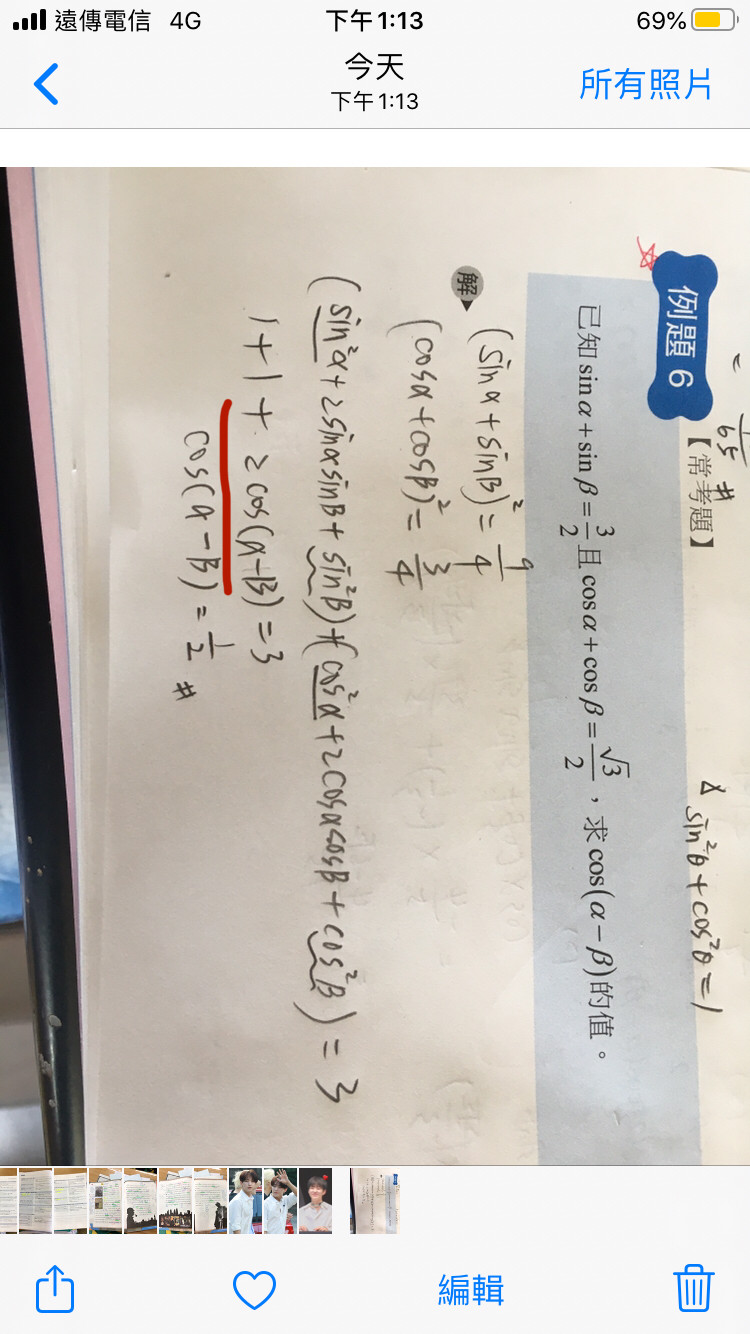 遠傳電信 4G 下午1:13 69%
今天
下午1:13
所有照片
= 1/65 #
例題 6 【常考題】
sin²θ+cos²θ=1
已知 sin α + sin β = 3/2 且 cos α + cos β = √3/2，求 cos(α－β)的值。
解
(sinα+sinβ)² = 9/4
(cosα+cosβ)² = 3/4
(sin²α+2sinαsinβ+sin²β)+(cos²α+2cosαcosβ+cos²β)=3
1+1+2cos(α-β)=3
cos(α-β)=1/2 #
編輯